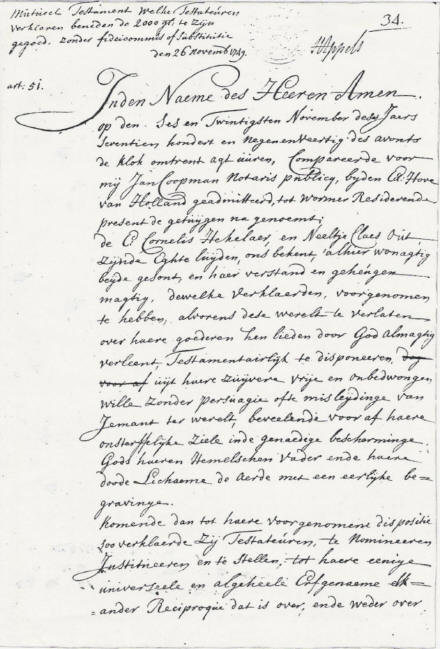 Mutueel Testament Welke Testateuren
verklaren beneden de 2000 gl. te zijn
gegoed. zonder fideicommis of substitutie
den 26 novemb 1749.
34.
Appels
art: 51.
Inden Naeme des Heeren Amen.
op den Ses en Twintigsten November deses Jaers
seventien hondert en negenenveertig des avonts
de klok omtrent agt uuren, Compareerde voor
mij Jan Coopman Notaris publicq, byden Ed. Hove
van Holland geadmitteerd, tot Wormer Residerende
present de getuijgen na genoemt;
de E Cornelis Hekelaer, en Neeltje Claes Out
zijnde Eghte luijden, ons bekent, alhier wonagtig
beyde gesont, en haer verstand en geheugen
magtig, dewelke verklaerden, voorgenomen
te hebben, alvorens dese werelt te verlaten
over haere goederen hen lieden door God Almagtig
verleent, Testamentairlijk te disponeeren, dog
voor af uijt haere zuijvere vrije en onbedwongen
wille zonder persuagie ofte misleydinge van
Jemant ter werelt, beveelende voor af haere
onsterflijke ziele inde genaedige bescherminge
Gods haeren Hemelschen Vader ende haere
doode Lichaeme de Aerde met een eerlijke be=
gravinge.
komende dan tot haere voorgenomene dispositie
zoo verklaerde Zij Testateuren, te Nomineeren
Institueeren en te stellen, tot haere eenige
universeele en algeheele Erfgenaeme Elk=
=ander Reciproque dat is over, ende weder over